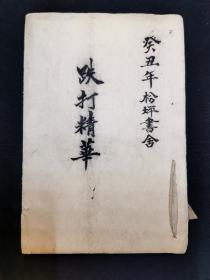 癸丑年松坪書舍
跌打精華